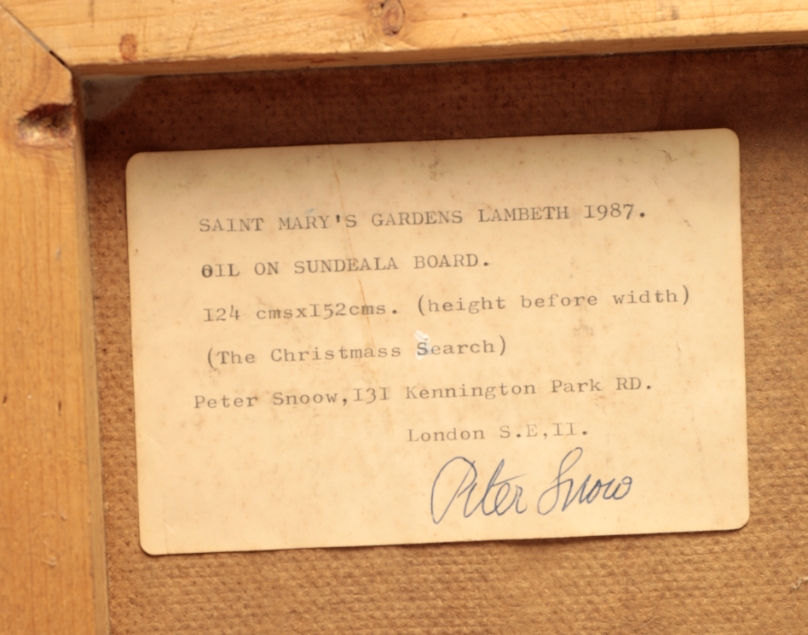 SAINT MARY'S GARDENS LAMBETH I987.
OIL ON SUNDEALA BOARD.
I24 cmsxI52cms. (height before width)
(The Christmass Search)
Peter Snoow,I3I Kennington Park RD.
London S.E,II.
Peter Snow